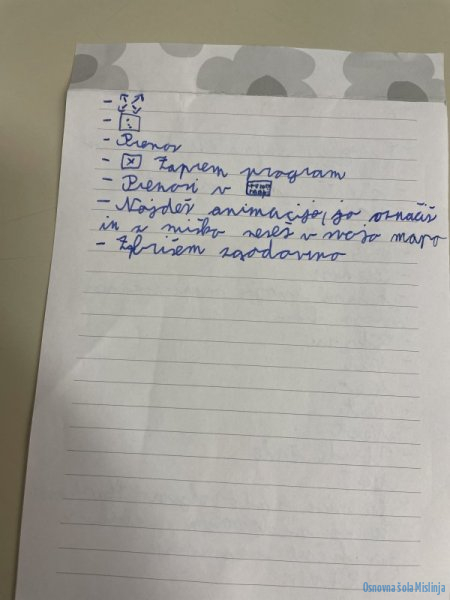 -
-
- Prenos
- [x] Zaprem program
- Prenosi v
- Najdeš animacijo, jo označiš
in z miško neseš v svojo mapo
- Zbrišem zgodovino
Osnovna šola Mislinja